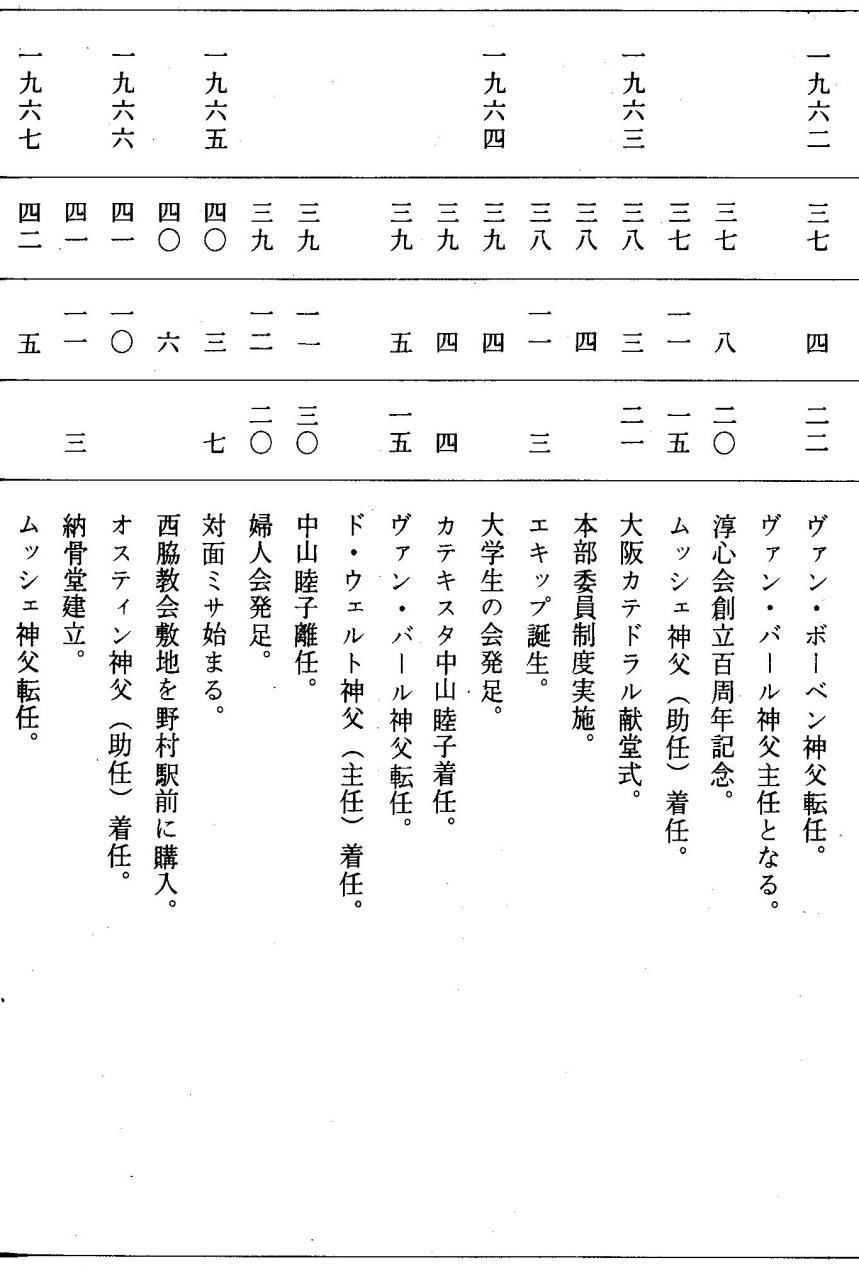 一九六二 三七 四 二二 ヴァン・ボーベン神父転任。
ヴァン・バール神父主任となる。
三七 八 二〇 淳心会創立百周年記念。
三七 一一 一五 ムッシェ神父（助任）着任。
一九六三 三八 三 二一 大阪カテドラル献堂式。
三八 四 本部委員制度実施。
三八 一一 三 エキップ誕生。
一九六四 三九 四 大学生の会発足。
三九 四 四 カテキスタ中山睦子着任。
三九 五 一五 ヴァン・バール神父転任。
ド・ウェルト神父（主任）着任。
三九 一一 三〇 中山睦子離任。
三九 一二 二〇 婦人会発足。
一九六五 四〇 三 七 対面ミサ始まる。
四〇 六 西脇教会敷地を野村駅前に購入。
一九六六 四一 一〇 オスティン神父（助任）着任。
四一 一一 三 納骨堂建立。
一九六七 四二 五 ムッシェ神父転任。